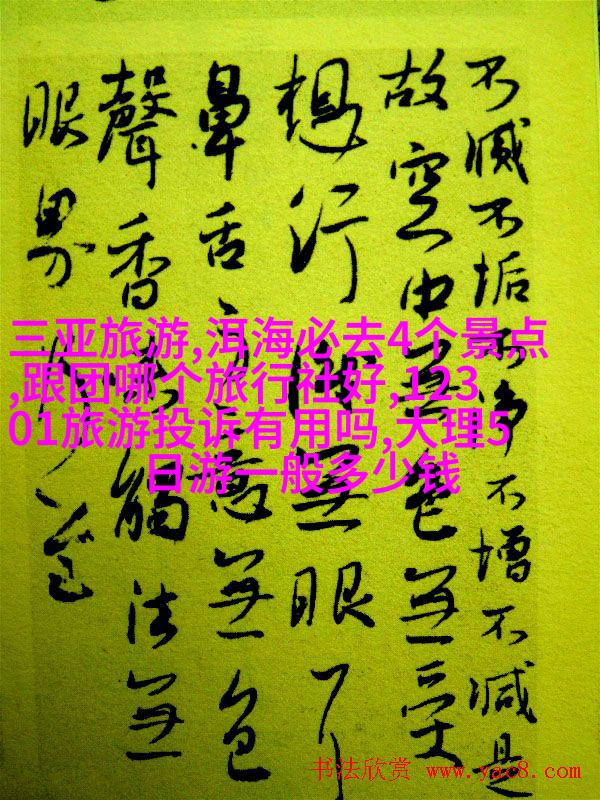 不滅不垢不净不增不减是
故空中無色無受
想行識無眼耳
鼻舌身意無色
聲香味觸法無
眼界
三亚旅游,洱海必去4个景点
,跟团哪个旅行社好,123
01旅游投诉有用吗,大理5
日游一般多少钱
书法欣赏 www.yac8.com